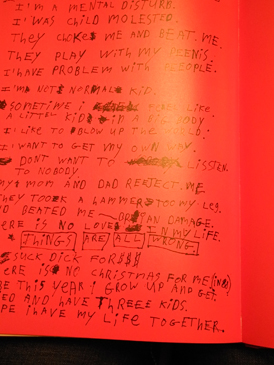 I'M A MENTAL DISTURB.
I'WAS CHILD MOLESTED.
THEY CHOKES ME AND BEAT ME.
THEY PLAY WITH MY PEENIS.
I'HAVE PROBLEM WITH PEOPLE.
I'MA NOT NORMAL KID.
SOMETIME I FEEL LIKE
A LITTEL KID IN A BIG BODY
I'LIKE TO BLOW UP THE WORLD.
I'WANT TO GET MY OWN WAY.
DONT WANT TO LISSEN.
TO NOBODY
MY MOM AND DAD REETJECT. ME
THEY TOOOK A HAMMER TO MY LEG.
D BEATED ME ORGAN DAMAGE.
ERE IS NO LOVE IN MY LIFE.
THINGS ARE ALL WRONG.
SUCK DICK FOR $$$
ERE IS NO CHRISTMAS FOR ME
BE THIS YEAR I GROW UP AND GET.
ED AND HAVE THREEE KIDS.
PE I HAVE MY LIFE TOGETHER.